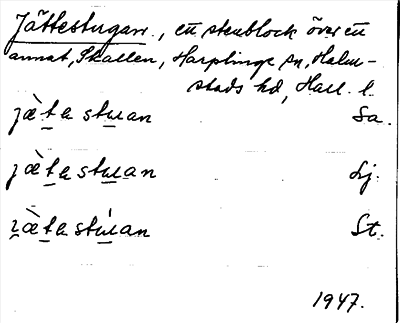 Jättestugan., ett stenblock över ett
annat, Skallen, Harplinge sn, Halm-
stads hd, Hall. l.
jæ̀ta stuan Sa.
jæ̀ta stuan Lj.
jæ̀ta stúan St.
1947.